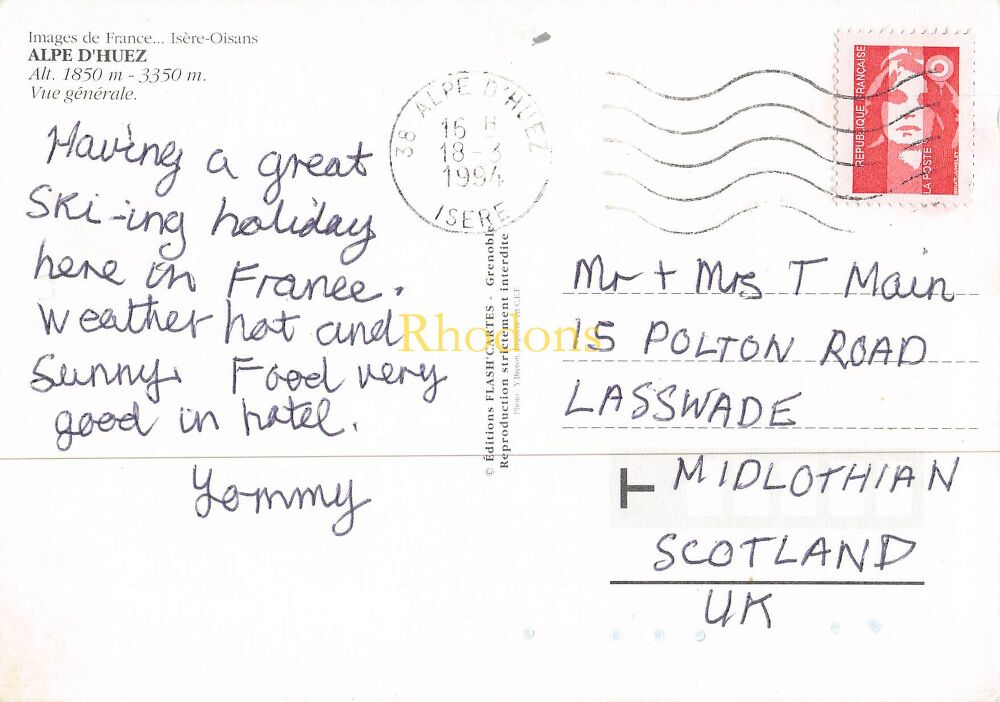 Images de France... Isère-Oisans
ALPE D'HUEZ
Alt. 1850 m - 3350 m.
Vue générale.
Having a great
Ski-ing holiday
here in France.
Weather hot and
Sunny. Food very
good in hotel.
Tommy
38 ALPE D'HUEZ
16 H
18-3
1994
ISERE
REPUBLIQUE FRANÇAISE
LA POSTE
© Éditions FLASH'CARTES - Grenoble
Reproduction strictement interdite
Rhodons
Mr + Mrs T Main
15 POLTON ROAD
LASSWADE
MIDLOTHIAN
SCOTLAND
UK